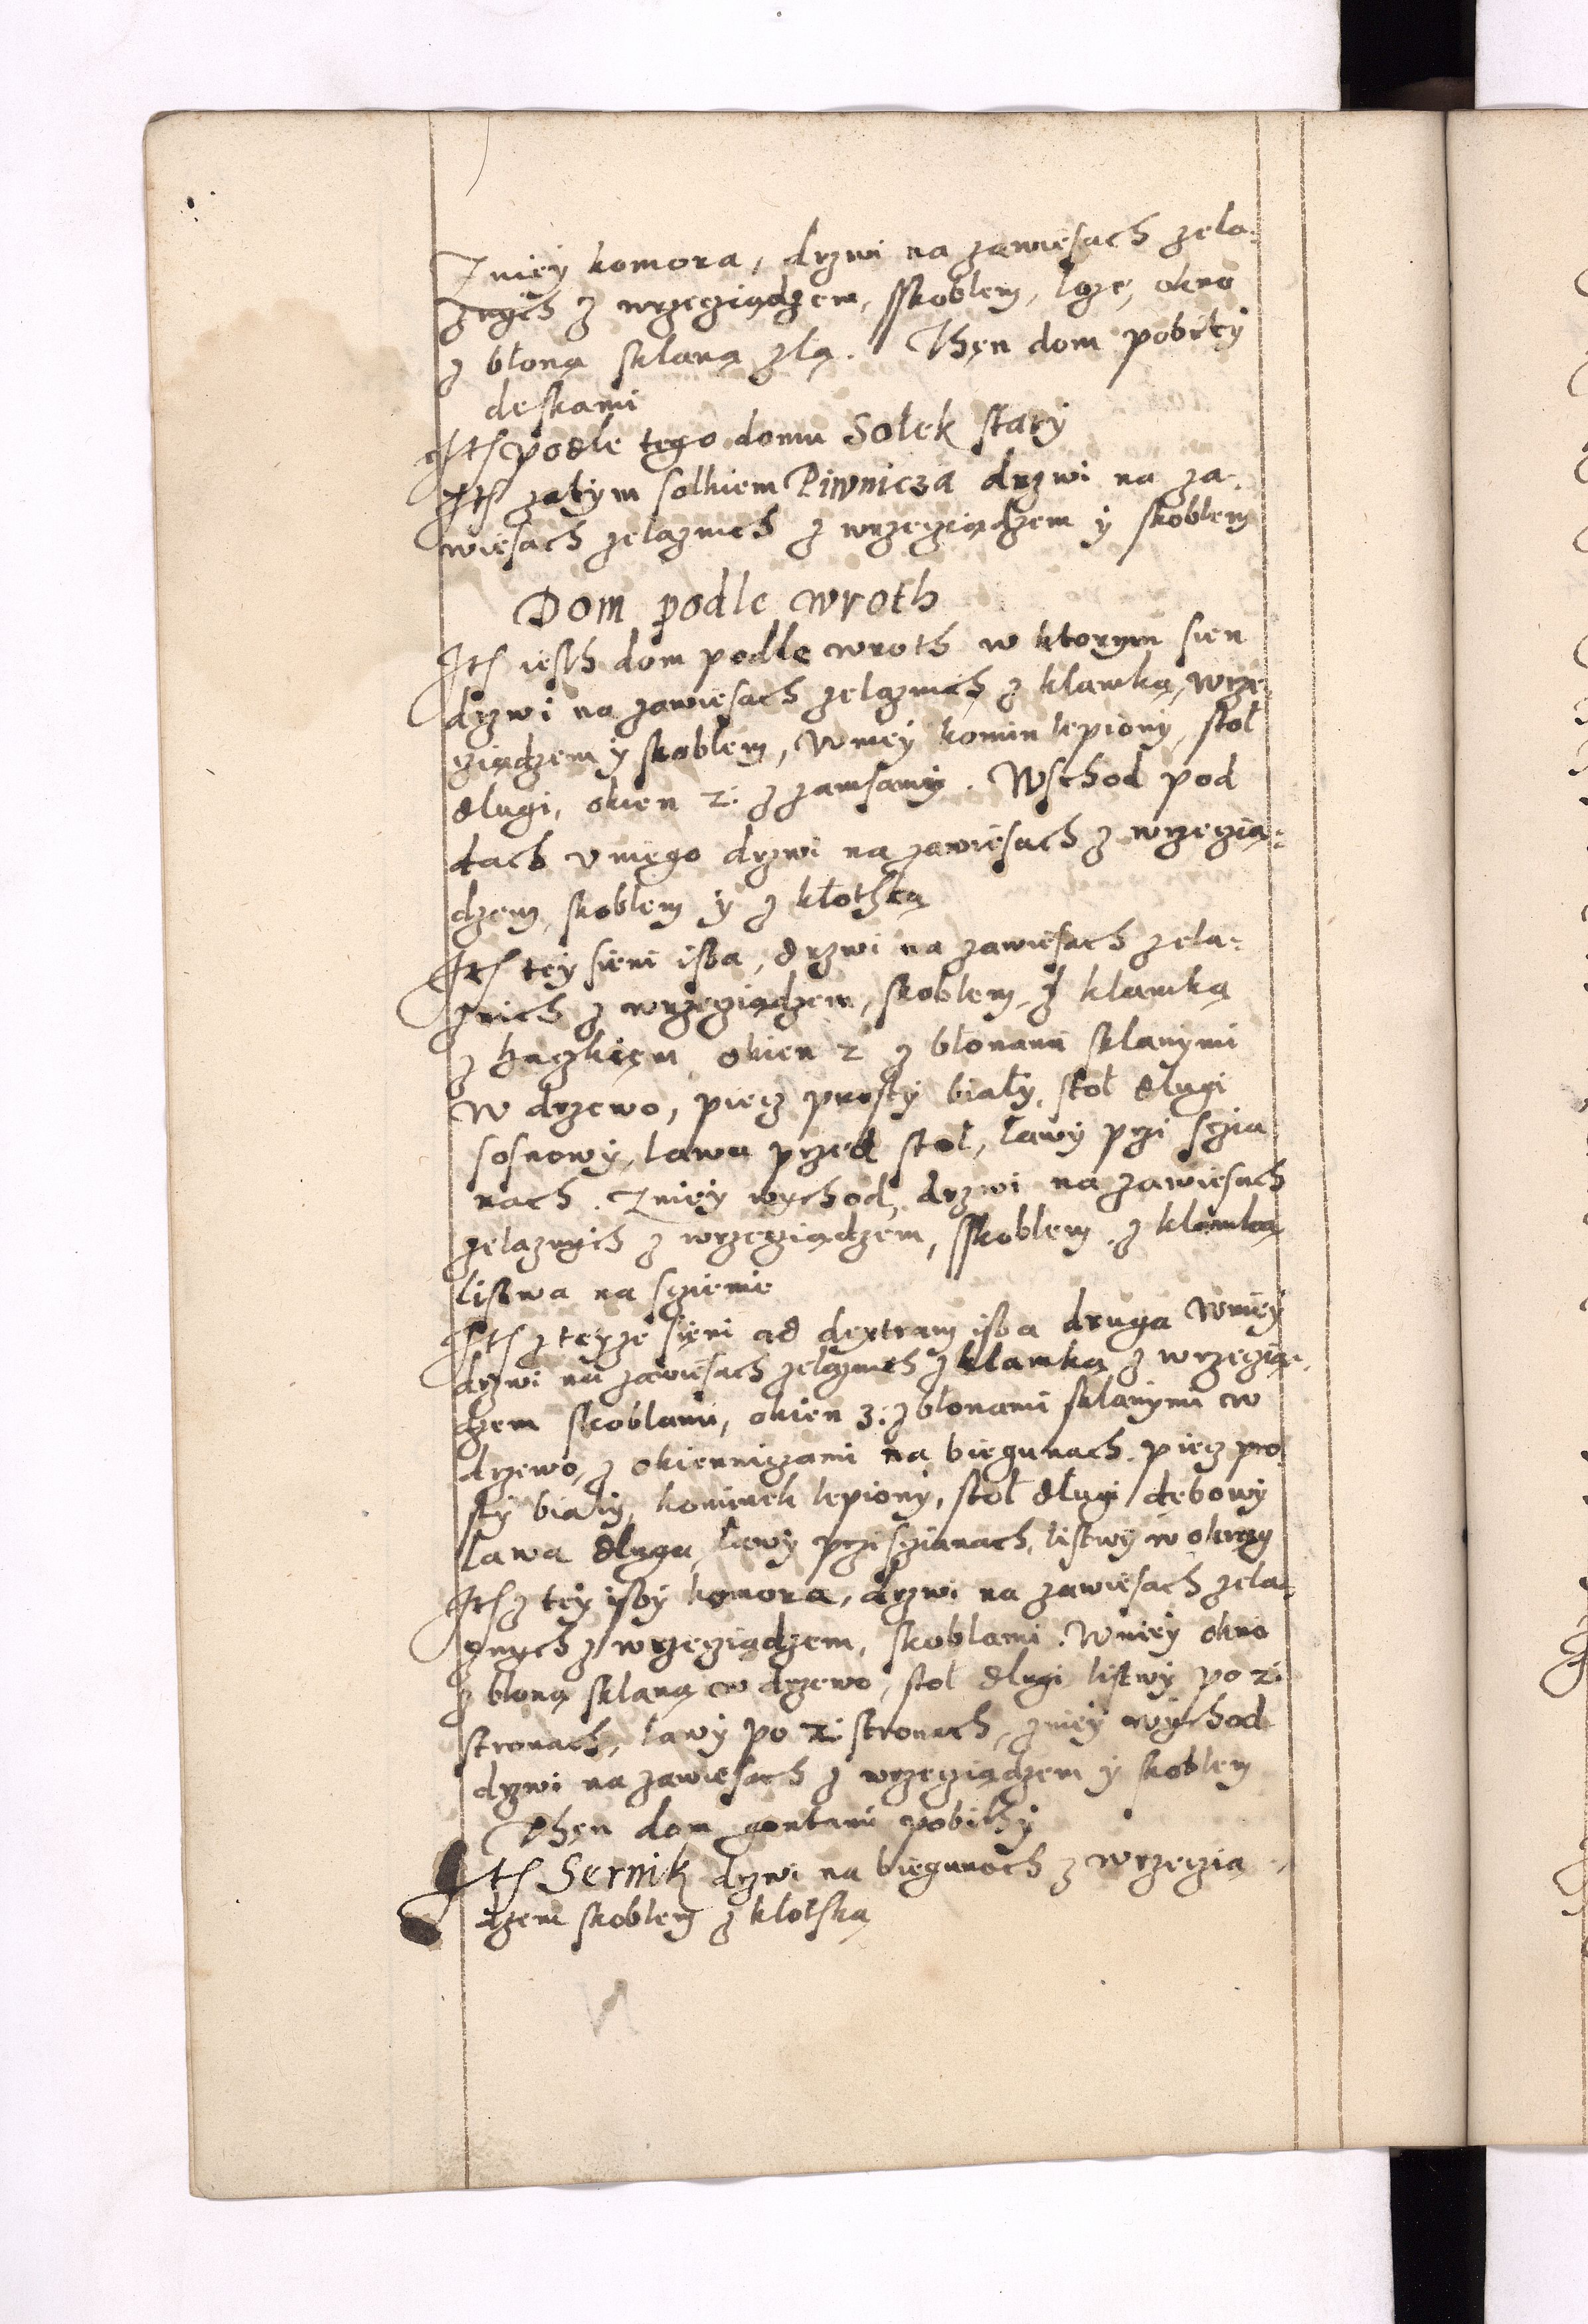 Zniey komora, drzwi na zawiesach zela-
znych z wrzeciądzem, sskoblem, loze, okno
z błoną sklaną złą. Then dom pobithy
deskami
Its podle tego domu Sołek stary
Its zatym solkiem Piwnicza drzwi na za-
wiesach zelaznich z wrzeciądzem y skoblem
Dom podle wroth
Its iesth dom podle wroth w ktorym sien
drzwi na zawiesach zelaznich z klamką, wrze-
ciądzem y skoblem, Wniey komin lepiony, stoł
długi, okien 2: z zamsamy. Wschod pod
dach v niego drzwi na zawiesach z wrzecią-
dzem, skoblem y z kłothką
Its tey sieni isba, drzwi na zawiesach zela-
znich z wrzeciądzem, skoblem, z klamką
z haczkiem okien 2 z błonami sklanymi
W drzewo, piecz prosty biały, stoł długi
sosnowy, lawa przed stoł, ławy przi scia
nach. Zniey wychod, drzwi na zawiesach
zelaznich z wrzeciądzem, sskoblem, z klamką
listwa na scienie
Its z teyze sieni ad dextram isba druga Wniey
drzwi na zawiesach zelaznich z klamką z wrzecią-
dzem skoblami, okien 3: z błonami sklanymi w
drzewo, z okienniczami na biegunach, piecz pro
sty biały, kominek lepiony, stoł długi dębowy
Ława długa, ławy przi scianach, listwy w okrąg
Its z tey isby komora, drzwi na zawiesach zela-
znych z wrzeciądzem, skoblami. Wniey okno
z błoną sklaną w drzewo, stoł długi listwy po 2:
stronach, ławy po 2: stronach, zniey wychod
drzwi na zawiesach z wrzeciądzem y skoblem
Then dom gontami pobithy
Its Sernik drzwi na biegunach z wrzecią-
dzem skoblem z kłotką